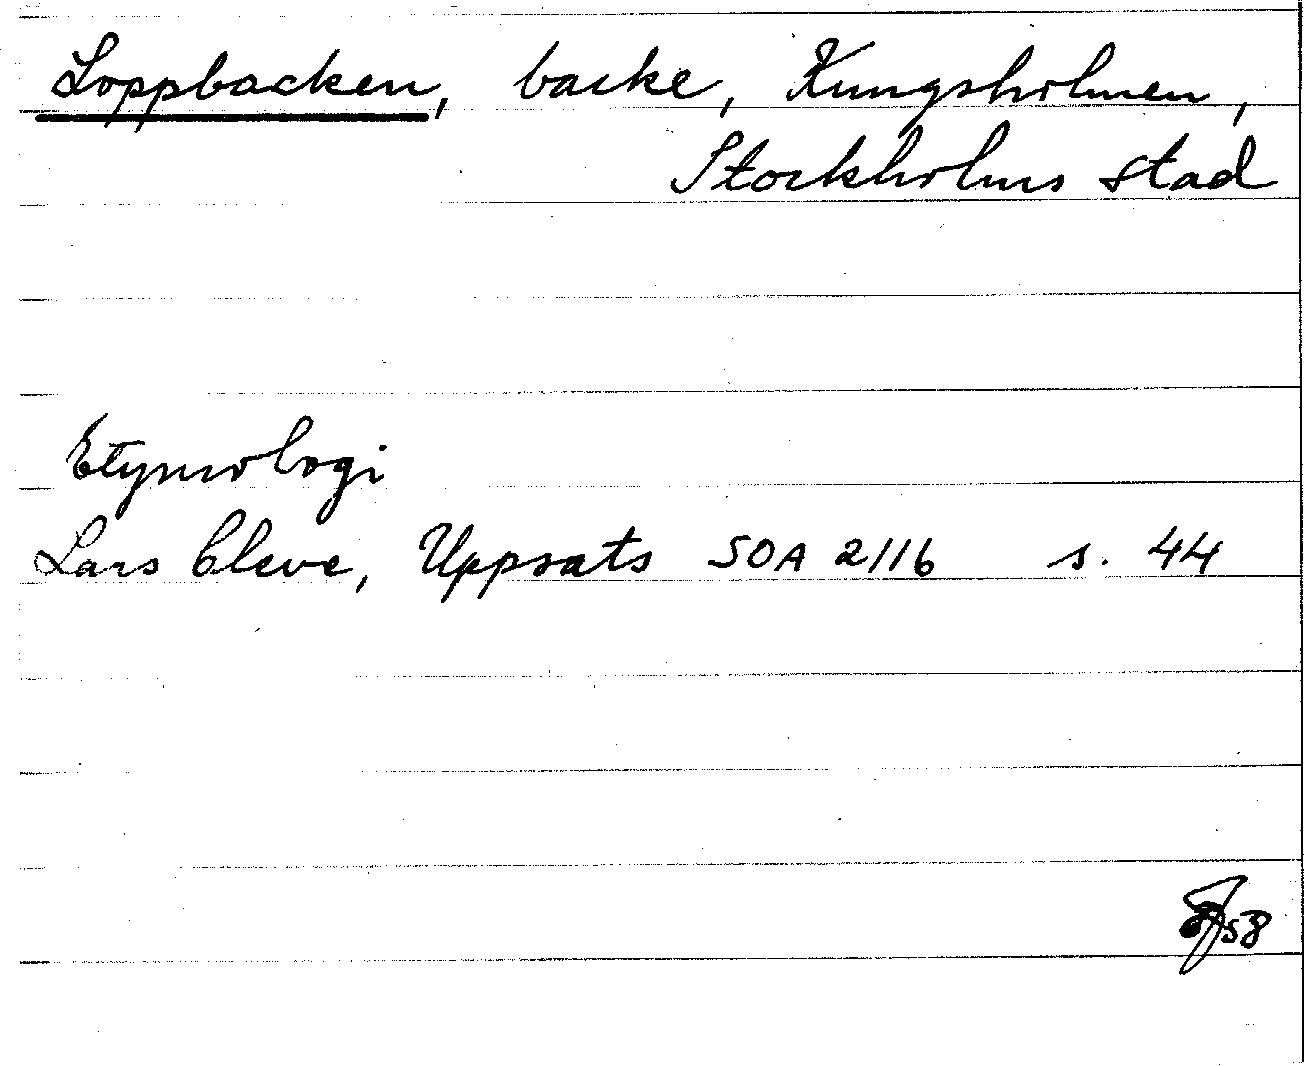 Loppbacken, backe, Kungsholmen,
Stockholms stad
Etymologi
Lars Cleve, Uppsats SOA 2116 s. 44
58